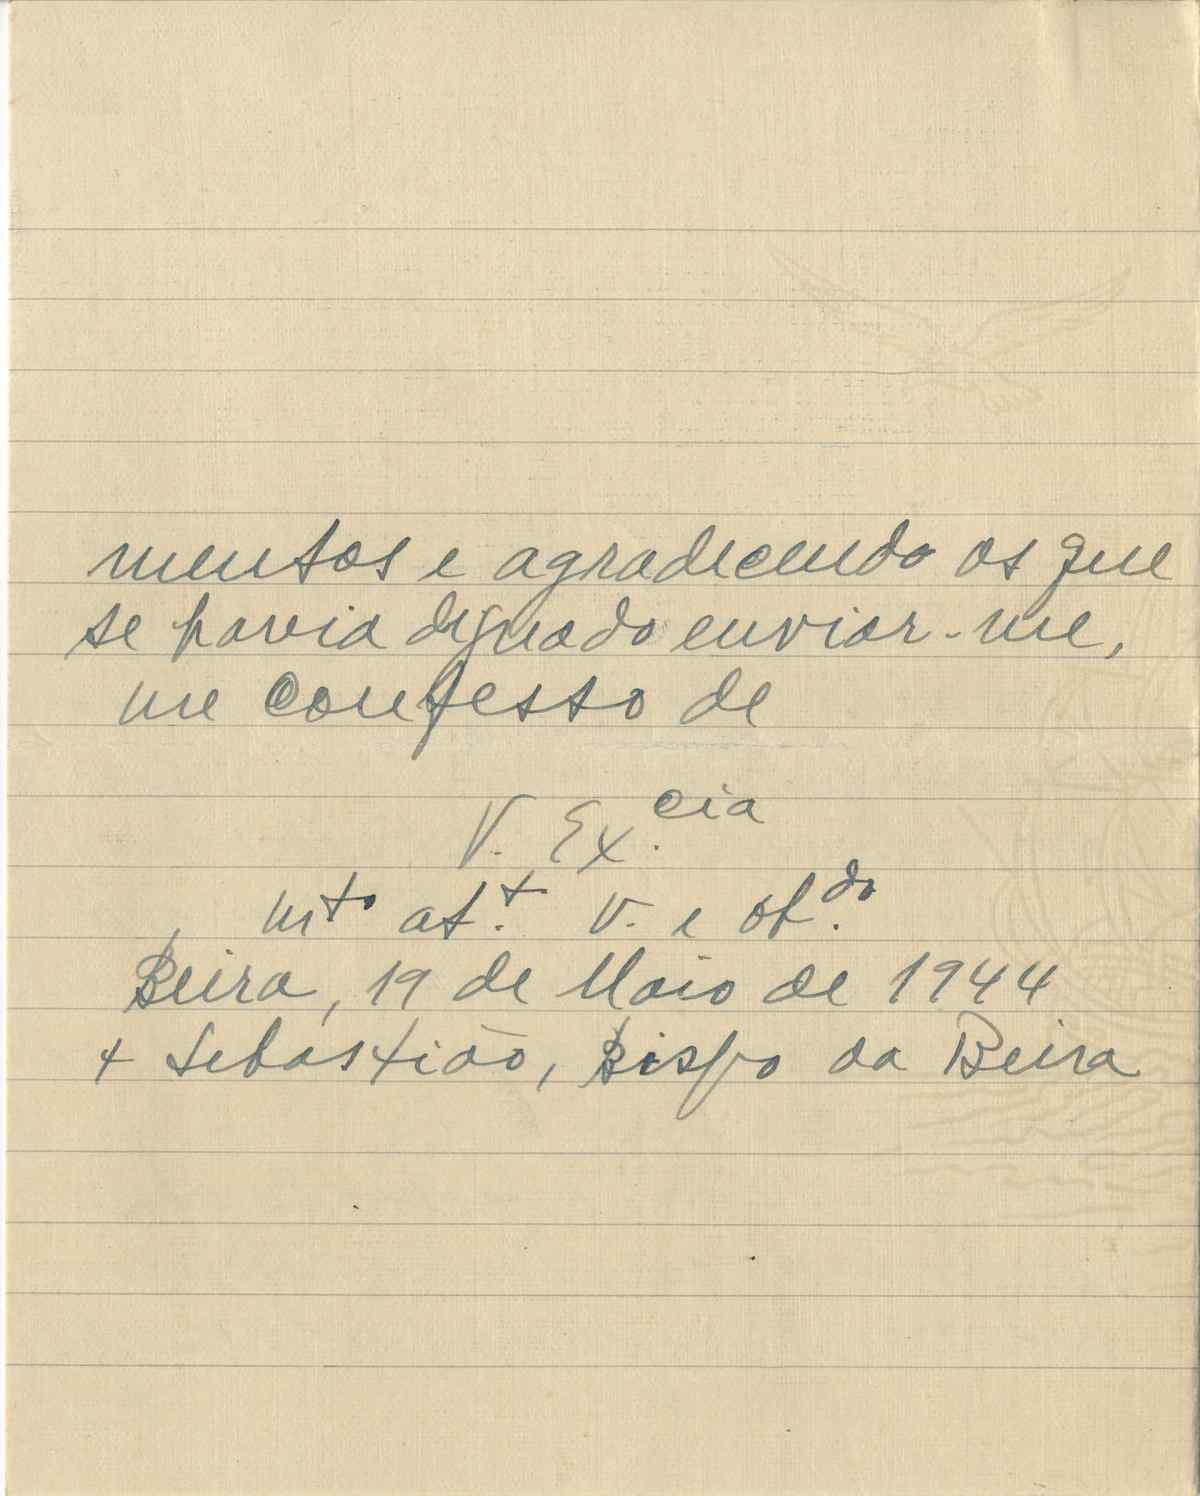 mentos e agradecendo os que
se havia dignado enviar-me,
me confesso de
V. Ex.cia
mto at.t V. e ob.do
Beira, 19 de Maio de 1944
+ Sebastião, Bispo da Beira